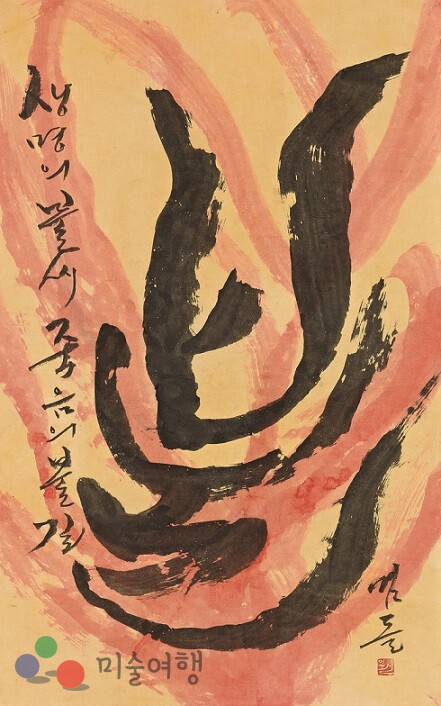 불
생명의 불씨 죽음의 불길
미술여행